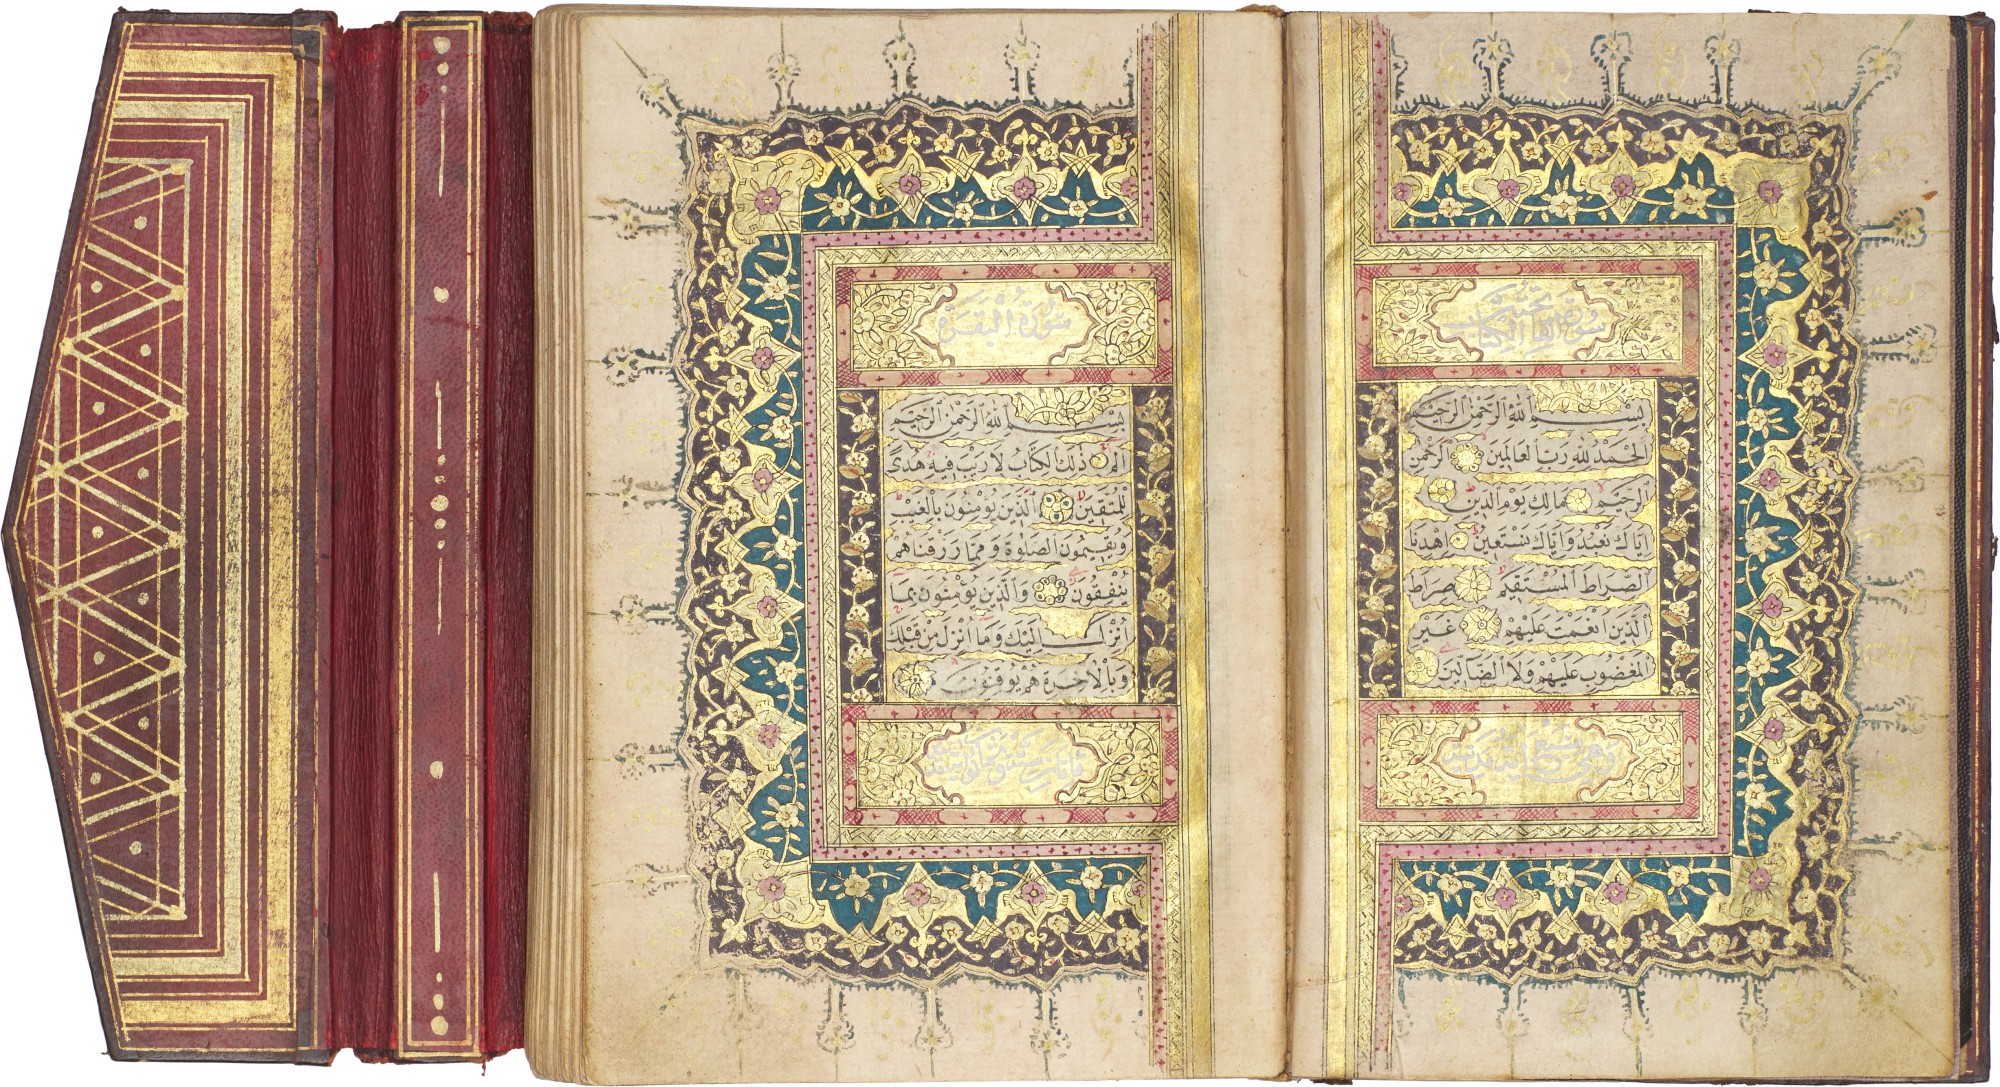 سورة فاتحة الكتاب
بسم الله الرحمن الرحيم
الحمد لله رب العالمين الرحمن
الرحيم مالك يوم الدين
اياك نعبد واياك نستعين اهدنا
الصراط المستقيم صراط
الذين انعمت عليهم غير
المغضوب عليهم ولا الضالين
وهي سبع آيات مدنية
سورة البقرة
بسم الله الرحمن الرحيم
الم ذلك الكتاب لا ريب فيه هدى
للمتقين الذين يؤمنون بالغيب
ويقيمون الصلوة ومما رزقناهم
ينفقون والذين يؤمنون بما
انزل اليك وما انزل من قبلك
وبالاخرة هم يوقنون